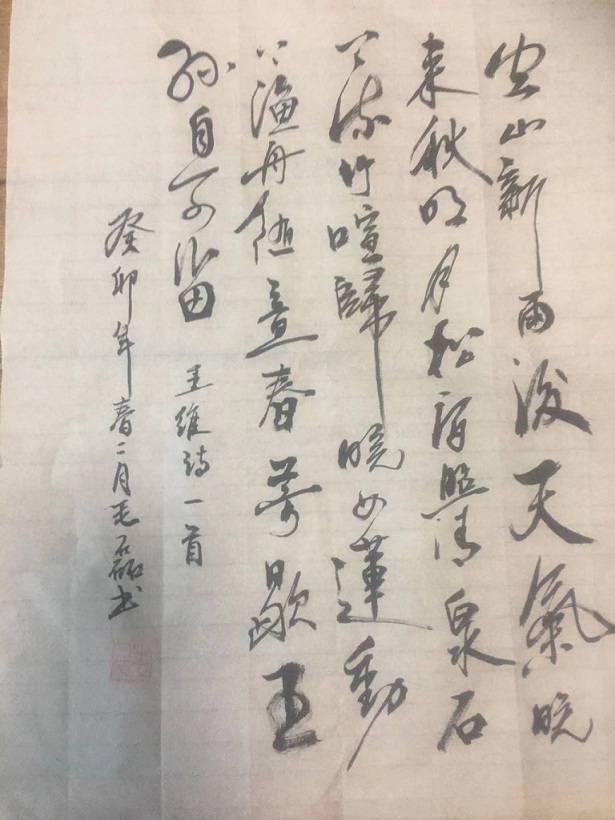 空山新雨後天氣晚
来秋明月松間照清泉石
上流竹喧歸浣女蓮動
下漁舟随意春芳歇王
孫自可留 王維詩一首
癸卯年春二月毛磊书